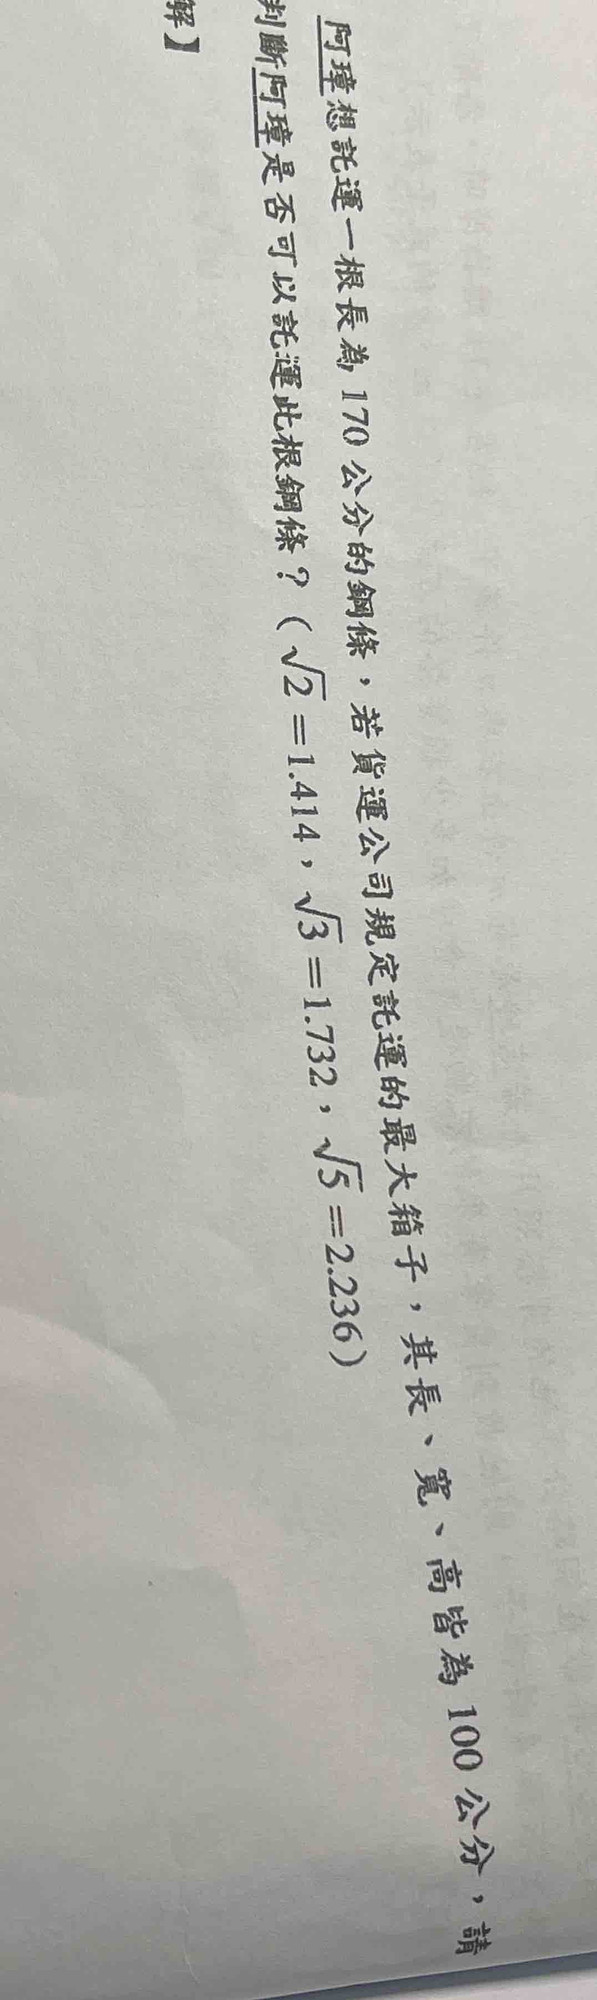 阿璋想託運一根長為 170 公分的鋼條，若貨運公司規定託運的最大箱子，其長、寬、高皆為 100 公分，請
判斷阿璋是否可以託運此根鋼條？（√2＝1.414，√3＝1.732，√5＝2.236）
解】